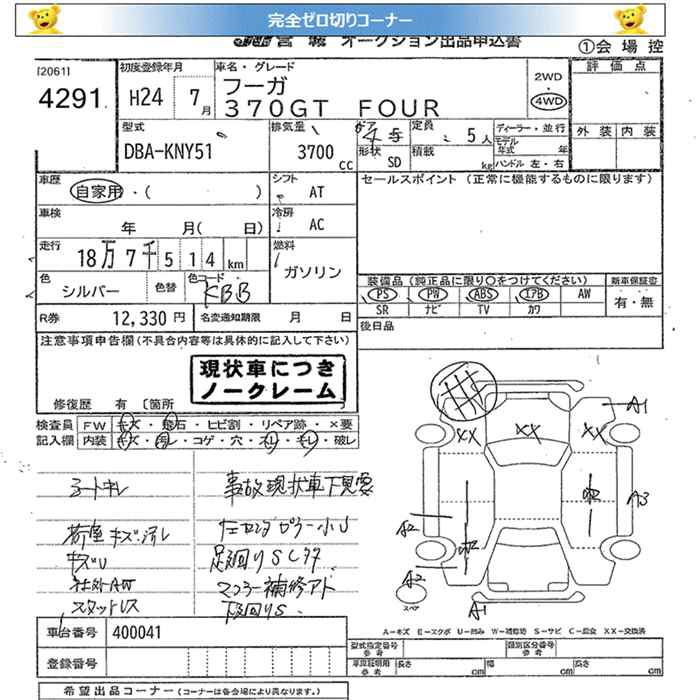 完全ゼロ切りコーナー
オークション出品申込書
①会場控
[2061]
4291
初度登録年月
H24 7月
車名・グレード
フーガ
370GT FOUR
2WD
・
4WD
評価点
外装 内装
型式
DBA-KNY51
排気量
3700 cc
形状 SD
定員 5人
積載 kg
ディーラー・並行
モデル年式 年
ハンドル 左・右
車歴
自家用・( )
シフト AT
セールスポイント (正常に機能するものに限ります)
車検 年 月( 日)
冷房 AC
走行 18万7千514km
燃料 ガソリン
色 シルバー
色替
色コード KBB
装備品(純正品に限り○をつけてください)
新車保証書
PS PW ABS エアB AW
有・無
SR ナビ TV カワ
R券 12,330円
名変通知期限 月 日
後日品
注意事項申告欄(不具合内容等は具体的に記入して下さい)
現状車につき
ノークレーム
修復歴 有 [箇所
検査員記入欄
FW キズ・飛石・ヒビ割・リペア跡・×要
内装 キズ・汚レ・コゲ・穴・スレ・キレ・破レ
シートキレ
事故現状車下見要
荷室キズ汚レ
キズU
足回りSCタタ
社外AW
マフラー補修アト
スタットレス
下回りS
XX XX XX
A1
A3
A2
A2
A1
スペア
A-キズ E-エクボ U-凹み W-補修跡 S-サビ C-腐食 XX-交換済
車台番号 400041
登録番号
型式指定番号
参考
類別区分番号
参考
車庫証明用
参考
長さ cm 幅 cm 高さ cm
希望出品コーナー (コーナーは各会場により異なります。)